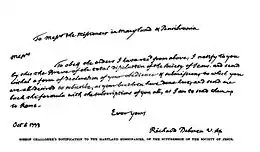 To Messrs the Missioners in Maryland & Pensilvania
Messrs
To obey the orders I have recd from above, I notify to you
by this the Breve of the total dissolution of the Society of Jesus, and send
withal a form of declaration of your obedience & submission to which you
are all desired to subscribe, as your brethren have done here, and send me
back the formula with the subscriptions of you all, as I am to send them up
to Rome.
Ever yours
Oct 6 1773
Richard Deboren V. Ap.
BISHOP CHALLONER'S NOTIFICATION TO THE MARYLAND MISSIONARIES, OF THE SUPPRESSION OF THE SOCIETY OF JESUS.